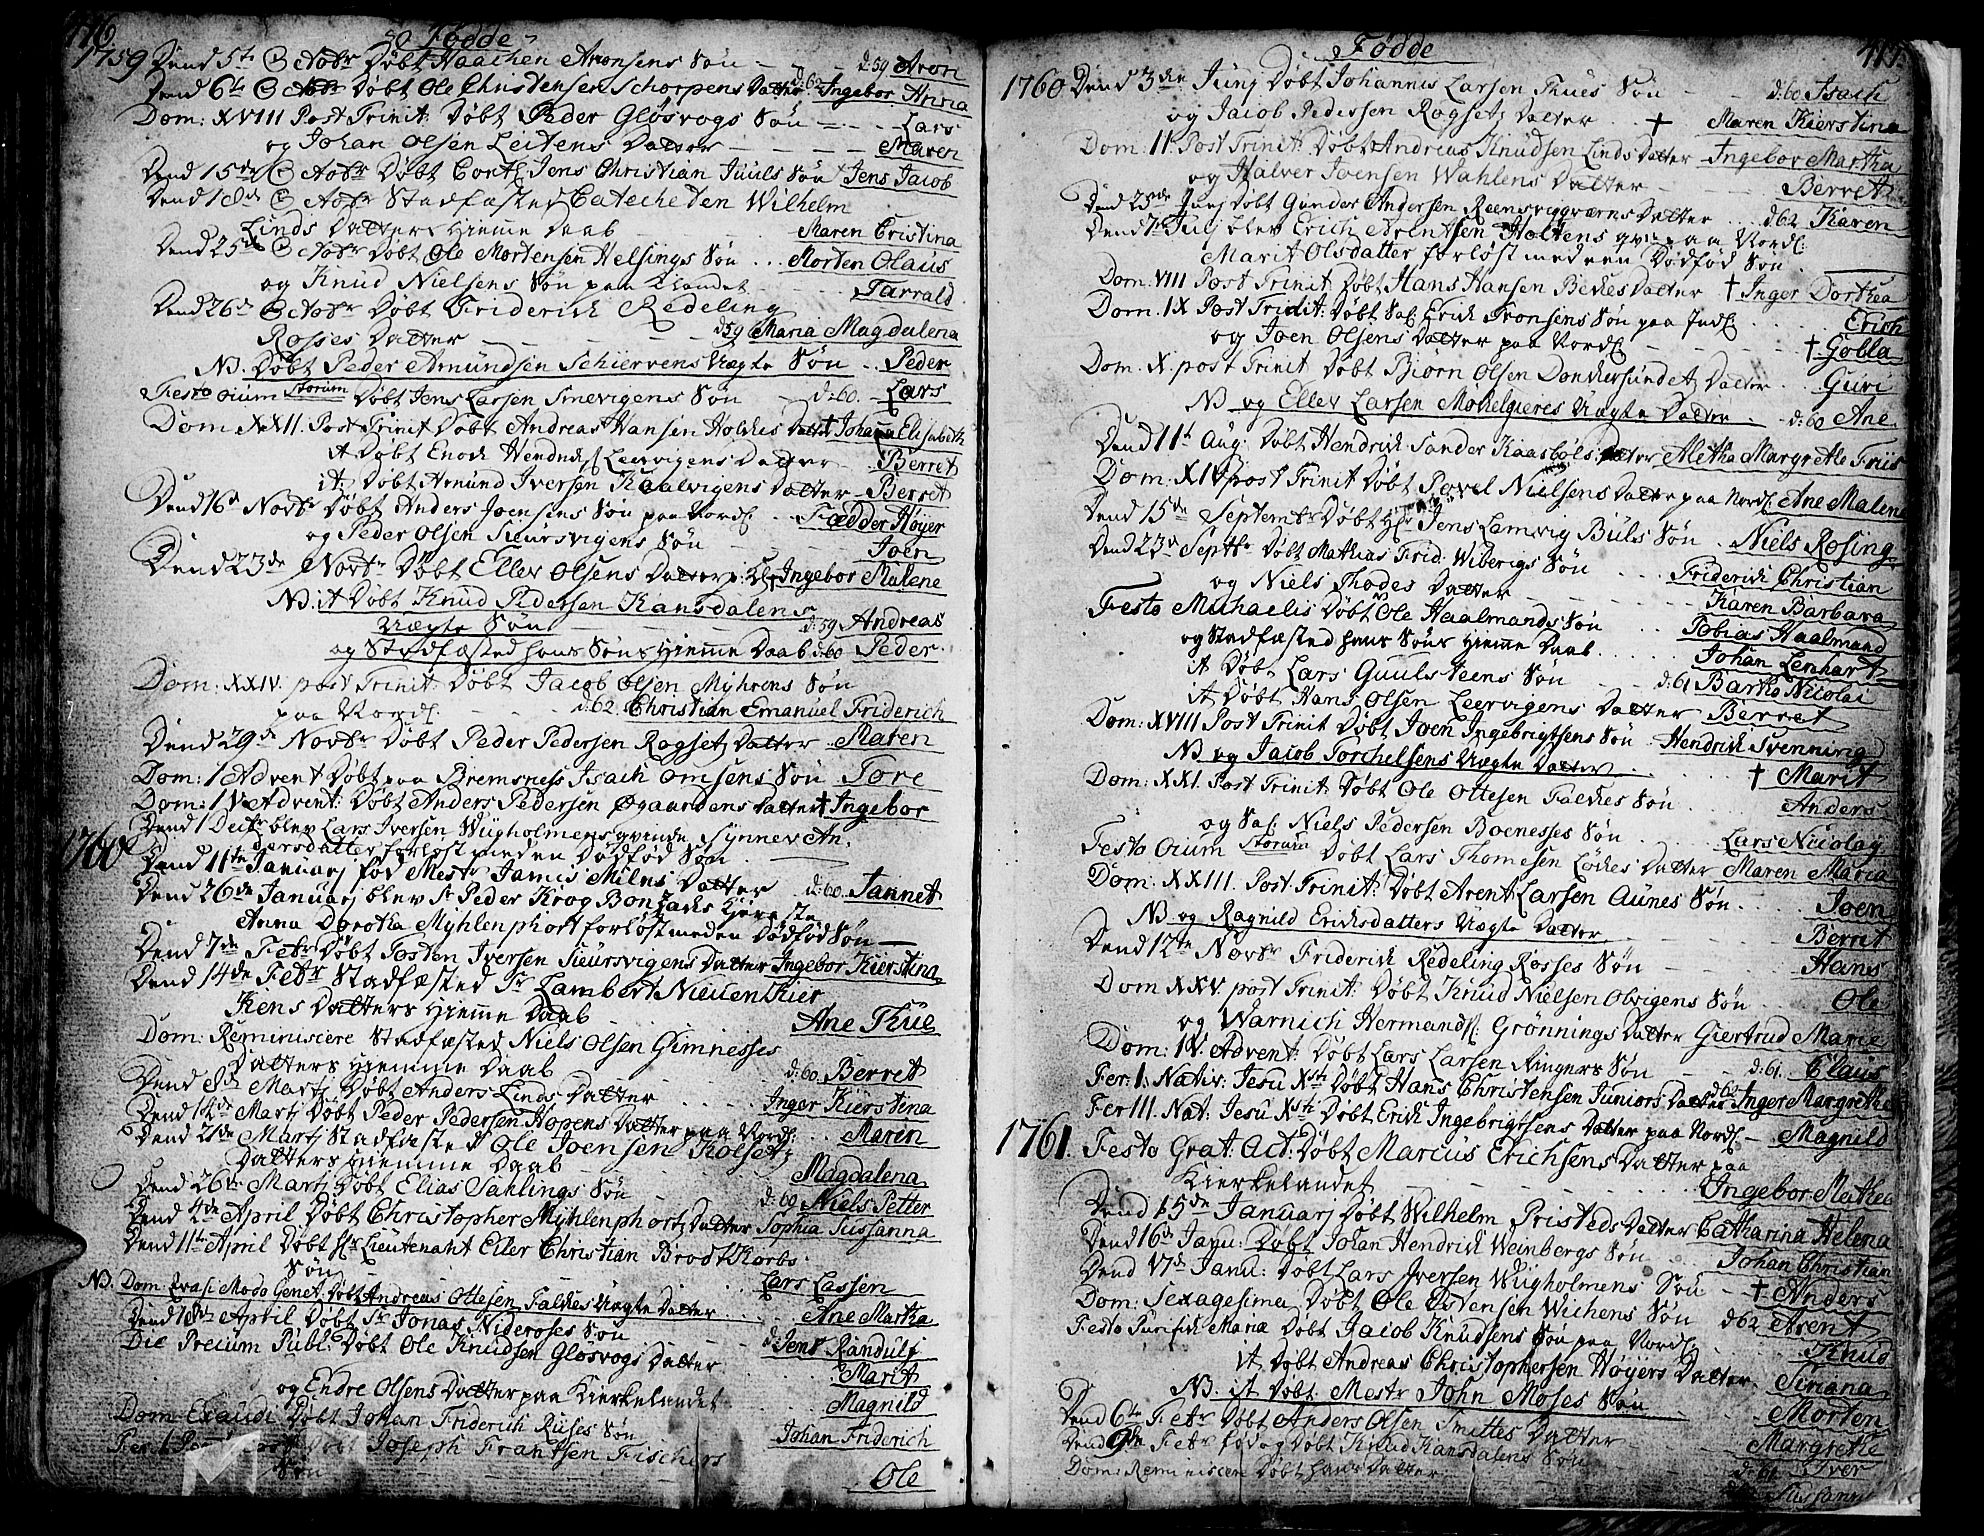 416
Fødde
1759 Dend 5te Octobr Døbt Haachen Aronsens Søn - - d:59 Aron
Dend 6te Octobr Døbt Ole Christensen Schorpens Datter d:62 Ingebor Anna
Dom: XVIII Post Trinit: Døbt Peder Gløsvogs Søn - - - Lars
og Johan Olsen Leitens Datter - - - - Maren
Dend 15de Octobr Døbt Jens Christian Juuls Søn Jens Jacob
Dend 18de Octobr Stadfæsted Wilhelm
Linds Datters Hiemme Daab Maren Cristina
Dend 25de Octobr Døbt Ole Mortensen Helsings Søn ... Morten Olaus
og Knud Nielsens Søn paa Landet Tarrald
Dend 26de Octobr Døbt Friderich Redeling
Rosses Datter - - - d59 Maria Magdalena
NB. Døbt Peder Amundsen Schiervens Uægte Søn .. Peder
Festo Oium Storum Døbt Jens Larsen Smevigens Søn - d:60. - Lars
Dom XXII. Post Trinit Døbt Andreas Hansen Holches Datter † Johanna Elisabeth
it Døbt Enoch Leervigens Datter - - Berret
it: Døbt Amund Iversen Kaalvigens Datter - Berret
Dend 16de Novbr Døbt Anders Joensens Søn paa Nordl. - Fedder Høyer
og Peder Olsen Sieursvigens Søn - - - Joen
Dend 23de Novbr Døbt Eller Olsens Datter Ingebor Malene
NB. it Døbt Knud Pedersen Kansdalens
Uægte Søn - - - d:59 Andreas
og Stadfæsted hans Søns Hiemme Daab d:60 Peder
Dom: XXIV. post Trinit: Døbt Jacob Olsen Myhrens Søn
paa Nordl. - - - d:62. Christian Emanuel Friderich
Dend 29de Novbr Døbt Peder Pedersen Ragsetz Datter - Maren
Dom: 1 Advent Døbt paa Bremsness Isach Omsens Søn Tore
Dom: IV Advent: Døbt Anders Pedersen Øgaardens Datter † Ingebor
Dend 1 Decbr blev Lars Iversen Wugholmens qvinde Synnev An-
dersdatter forløst med en Dødfød Søn
1760 Dend 11te Januarj fød Mestr James Milns Datter d:60. Jannet
Dend 26de Januarj blev Sr Peder Krog Bonsachs Kiereste
Anna Dorothea Myhlenphort forløst med en Dødfød Søn
Dend 7de Febr Døbt Tosten Iversen Sieursvigens Datter Ingebor Kierstina
Dend 14de Febr Stadfæsted Sr Lambert Nieuenthier
Kens Datters Hiemme Daab Ane Kue
Dom: Reminiscere Stadfæsted Niels Olsen Gimnesses
Datters Hiemme Daab d:60. Berret
Dend 8de Martj Døbt Anders Linds Datter .... Inger Kierstina
Dend 12de Martj Døbt Peder Pedersen Hopens Datter paa Nordl. .. Maren
Dend 21de Martj Stadfæsted Ole Joensen Kolsetz
Datters Hiemme Daab - - - Magdalena
Dend 26de Martj Døbt Elias Sahlings Søn - d:60 Niels Petter
Dend 2de April Døbt Christopher Myhlenphortz Datter Sophia Sussanna
Dend 11te April Døbt Hr Lieutenant Eiler Christian Brodtkorbs
Søn Lars Lassen
NB. Dom: Qvasi Modo Genet. Døbt Andreas Ottesen Falches Uægte Datter Ane Martha
Dend 18de April Døbt Sr Jonas Nideroses Søn Jens Randulf
Die Precum Publ: Døbt Ole Knudsen Gløsvogs Datter Marit
og Endre Olsens Datter paa Kierkelandet Magnild
Dom Exaudi Døbt Johan Friderich Ruses Søn Johan Friderich
Fer. 1 Døbt Joseph Frantsen Fischers
Søn - - - Ole
417.
Fødde
1760 Dend 3de Junj Døbt Johannis Larsen Thues Søn - - d:60 Isach
og Jacob Pedersen Ragsetz Datter .. † Maren Kierstina
Dom: II Post Trinit: Døbt Andreas Knudsen Linds Datter Ingebor Martha
og Halver Joensen Wahlens Datter - - - Berret
Dend 25de Junj Døbt Gunder Andersen Reensviggværns Datter ... d62 Karen
Dend 7de Julj blev Erich Arentsen Holtens qvinde paa Nordl.
Marit Olsdatter forløst med een Dødfød Søn
Dom: VIII Post Trinit: Døbt Hans Hansen Beckes Datter † Inger Dorthea
Dom: IX Post Trinit: Døbt Sal Erich Tronsens Søn paa Indl. .... Erich
og Joen Olsens Datter paa Nordl. - - - † Gobla
Dom: X. post Trinit Døbt Biørn Olsen Donckersundetz Datter .. Guri
NB og Eller Larsen Møkelgieres Uægte Datter - d:60 Ane
Dend 11te Aug Døbt Hendrich Sander Kaasbøls Datter Aletha Margrethe Friis
Dom: XIV post Trinit Døbt Povel Nielsens Datter paa Nordl. Ane Malene
Dend 15de Septembr Døbt Hr Jens Lemvig Buls Søn . Niels Rosing
Dend 23de Septbr Døbt Mathias Frid: Wibergs Søn ... Friderich Christian
og Niels Thodes Datter - - - Karen Barbara
Festo Michaelis Døbt Ole Haalmands Søn ... Tobias Haalmand
og Stadfæsted hans Søns Hiemme Daab .... Johan Lenhart
it Døbt Lars Guulsteens Søn - - d:61 Bartho Nicolai
it Døbt Hans Olsen Leervigens Datter Berret
Dom: XVIII Post Trinit Døbt Joen Ingebrigtsens Søn . Hendrich Svenning
NB og Jacob Torchelsens Uægte Datter ... † Marit
Dom: XXI. Post Trinit: Døbt Ole Ottesen Falches Søn .. Anders
og Sal. Niels Pedersen Boenesses Søn ... Lars Nicolay
Festo Oium Storum Døbt Lars Thomesen Løches Datter Maren Maria
Dom: XXIII. Post Trinit: Døbt Arent Larsen Aunes Søn ... Joen
NB og Ragnild Erichsdatters Uægte Datter - - Berret
Dend 12te Novbr Friderich Redeling Rosses Søn - - Hans
Dom XXV. post Trinit: Døbt Knud Nielsen Olvigens Søn .. Ole
og Warnich Hermands: Grønnings Datter Giertrud Marie
Dom: IV. Advent: Døbt Lars Larsen Ringners Søn - d:61. Claus
Fer: I. Nativ: Jesu Xsti Døbt Hans Christensen Juniors Datter Inger Margrethe
Fer III. Nat: Jesu Xsti Døbt Erich Ingebrigtsens Datter paa Nordl. - Magnild
1761. Festo Grat: Act: Døbt Marcus Erichsens Datter paa
Kierkelandet - - - - Ingebor Mathea
Dend 15de Januarj Døbt Wilhelm Pristeds Datter Catharina Helena
Dend 16de Janu: Døbt Johan Hendrich Weinbergs Søn ... Johan Christian
Dend 17de Janu: Døbt Lars Iversen Wugholmens Søn - † Anders
Dom: Sexagesima Døbt Ole Estensen Wichens Søn d62 Arent
Festo Purifich Mariæ Døbt Jacob Knudsens Søn paa Nordl. Knud
it Døbt Andreas Christophersen Høyers Datter . Siriana
NB. it Døbt Mestr John Moses Søn Morten
Dend 6te Febr Døbt Anders Olsen Smittes Datter - Margrethe
Dend 9de Febr fød og Døbt Knud Kansdalens Søn d:61 Iver
Dom: Reminiscere Døbt hans Datter Sussanna